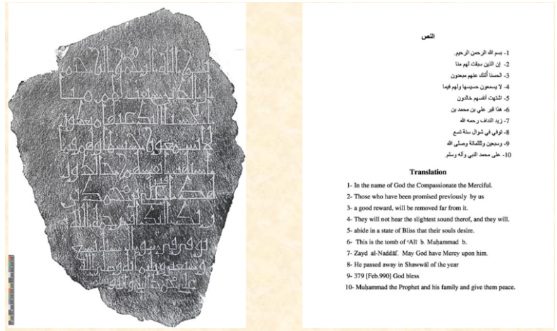 النص
1- بسم الله الرحمن الرحيم.
2- إن الذين سبقت لهم منا
3- الحسنا أُلئك عنهم مبعدون
4- لا يسمعون حسيسها ولهم فيما
5- اشتهت أنفسهم خالدون
6- هذا قبر علي بن محمد بن
7- زيد النداف رحمه الله
8- توفي في شوال سنة تسع
9- وسبعين وثلثمائة وصلى الله
10- على محمد النبي وآله وسلم.
Translation
1- In the name of God the Compassionate the Merciful.
2- Those who have been promised previously by us
3- a good reward, will be removed far from it.
4- They will not hear the slightest sound therof, and they will.
5- abide in a state of Bliss that their souls desire.
6- This is the tomb of ʿAlī b. Muḥammad b.
7- Zayd al-Naddāf. May God have Mercy upon him.
8- He passed away in Shawwāl of the year
9- 379 [Feb.990] God bless
10- Muḥammad the Prophet and his family and give them peace.